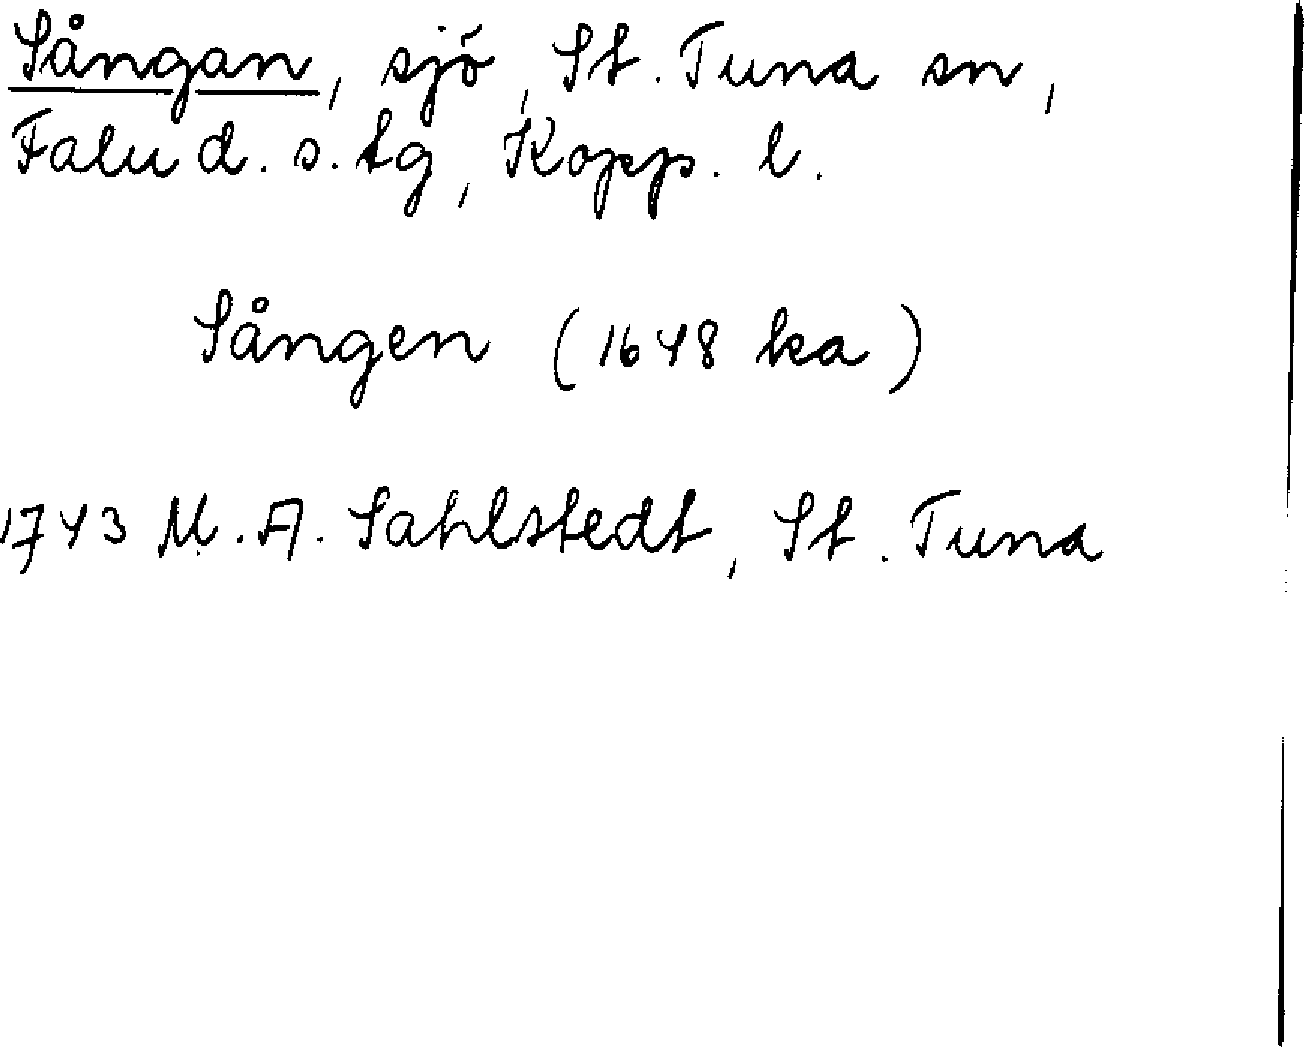 Sångan, sjö, St. Tuna sn,
Falu d. s. tg, Kopp. l.
Sången (1648 ka)
1743 M. A. Sahlstedt, St. Tuna